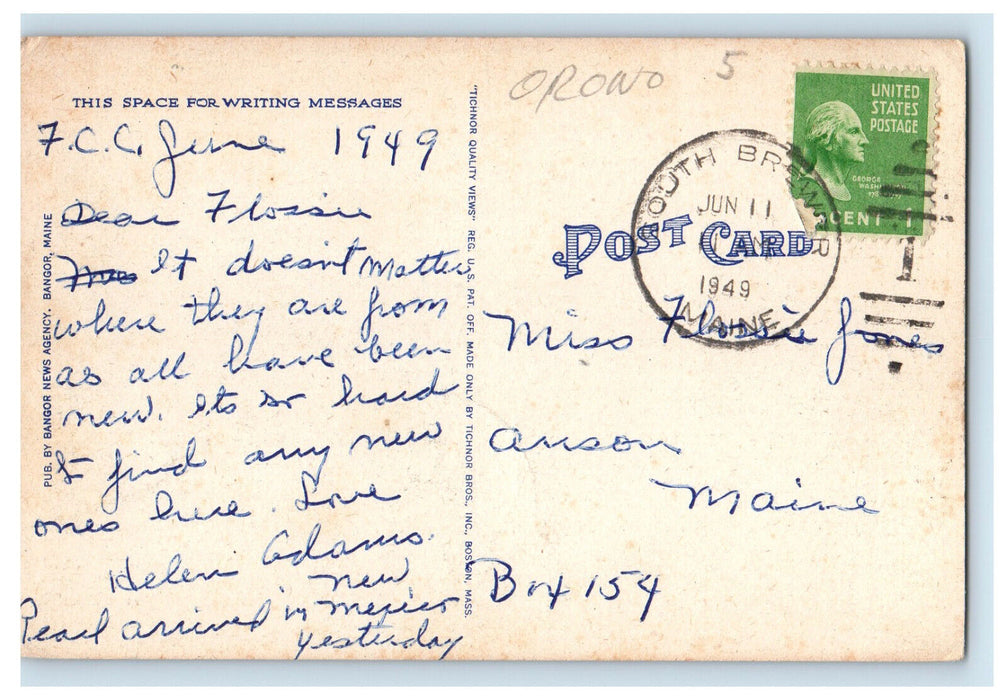 ORONO 5
THIS SPACE FOR WRITING MESSAGES
F.C.C. June 1949
Dear Flossie
It doesn't matter
where they are from
as all have been
new. Its so hard
to find any new
ones here. Love
Helen Adams.
Pearl arrived in new mexico
yesterday
PUB. BY BANGOR NEWS AGENCY, BANGOR, MAINE
"TICHNOR QUALITY VIEWS" REG. U. S. PAT. OFF. MADE ONLY BY TICHNOR BROS., INC., BOSTON, MASS.
UNITED
STATES
POSTAGE
GEORGE
CENT 1
SOUTH BREWER
JUN 11
1949
MAINE
POST CARD
Miss Flossie Jones
Anson
Maine
Box 154